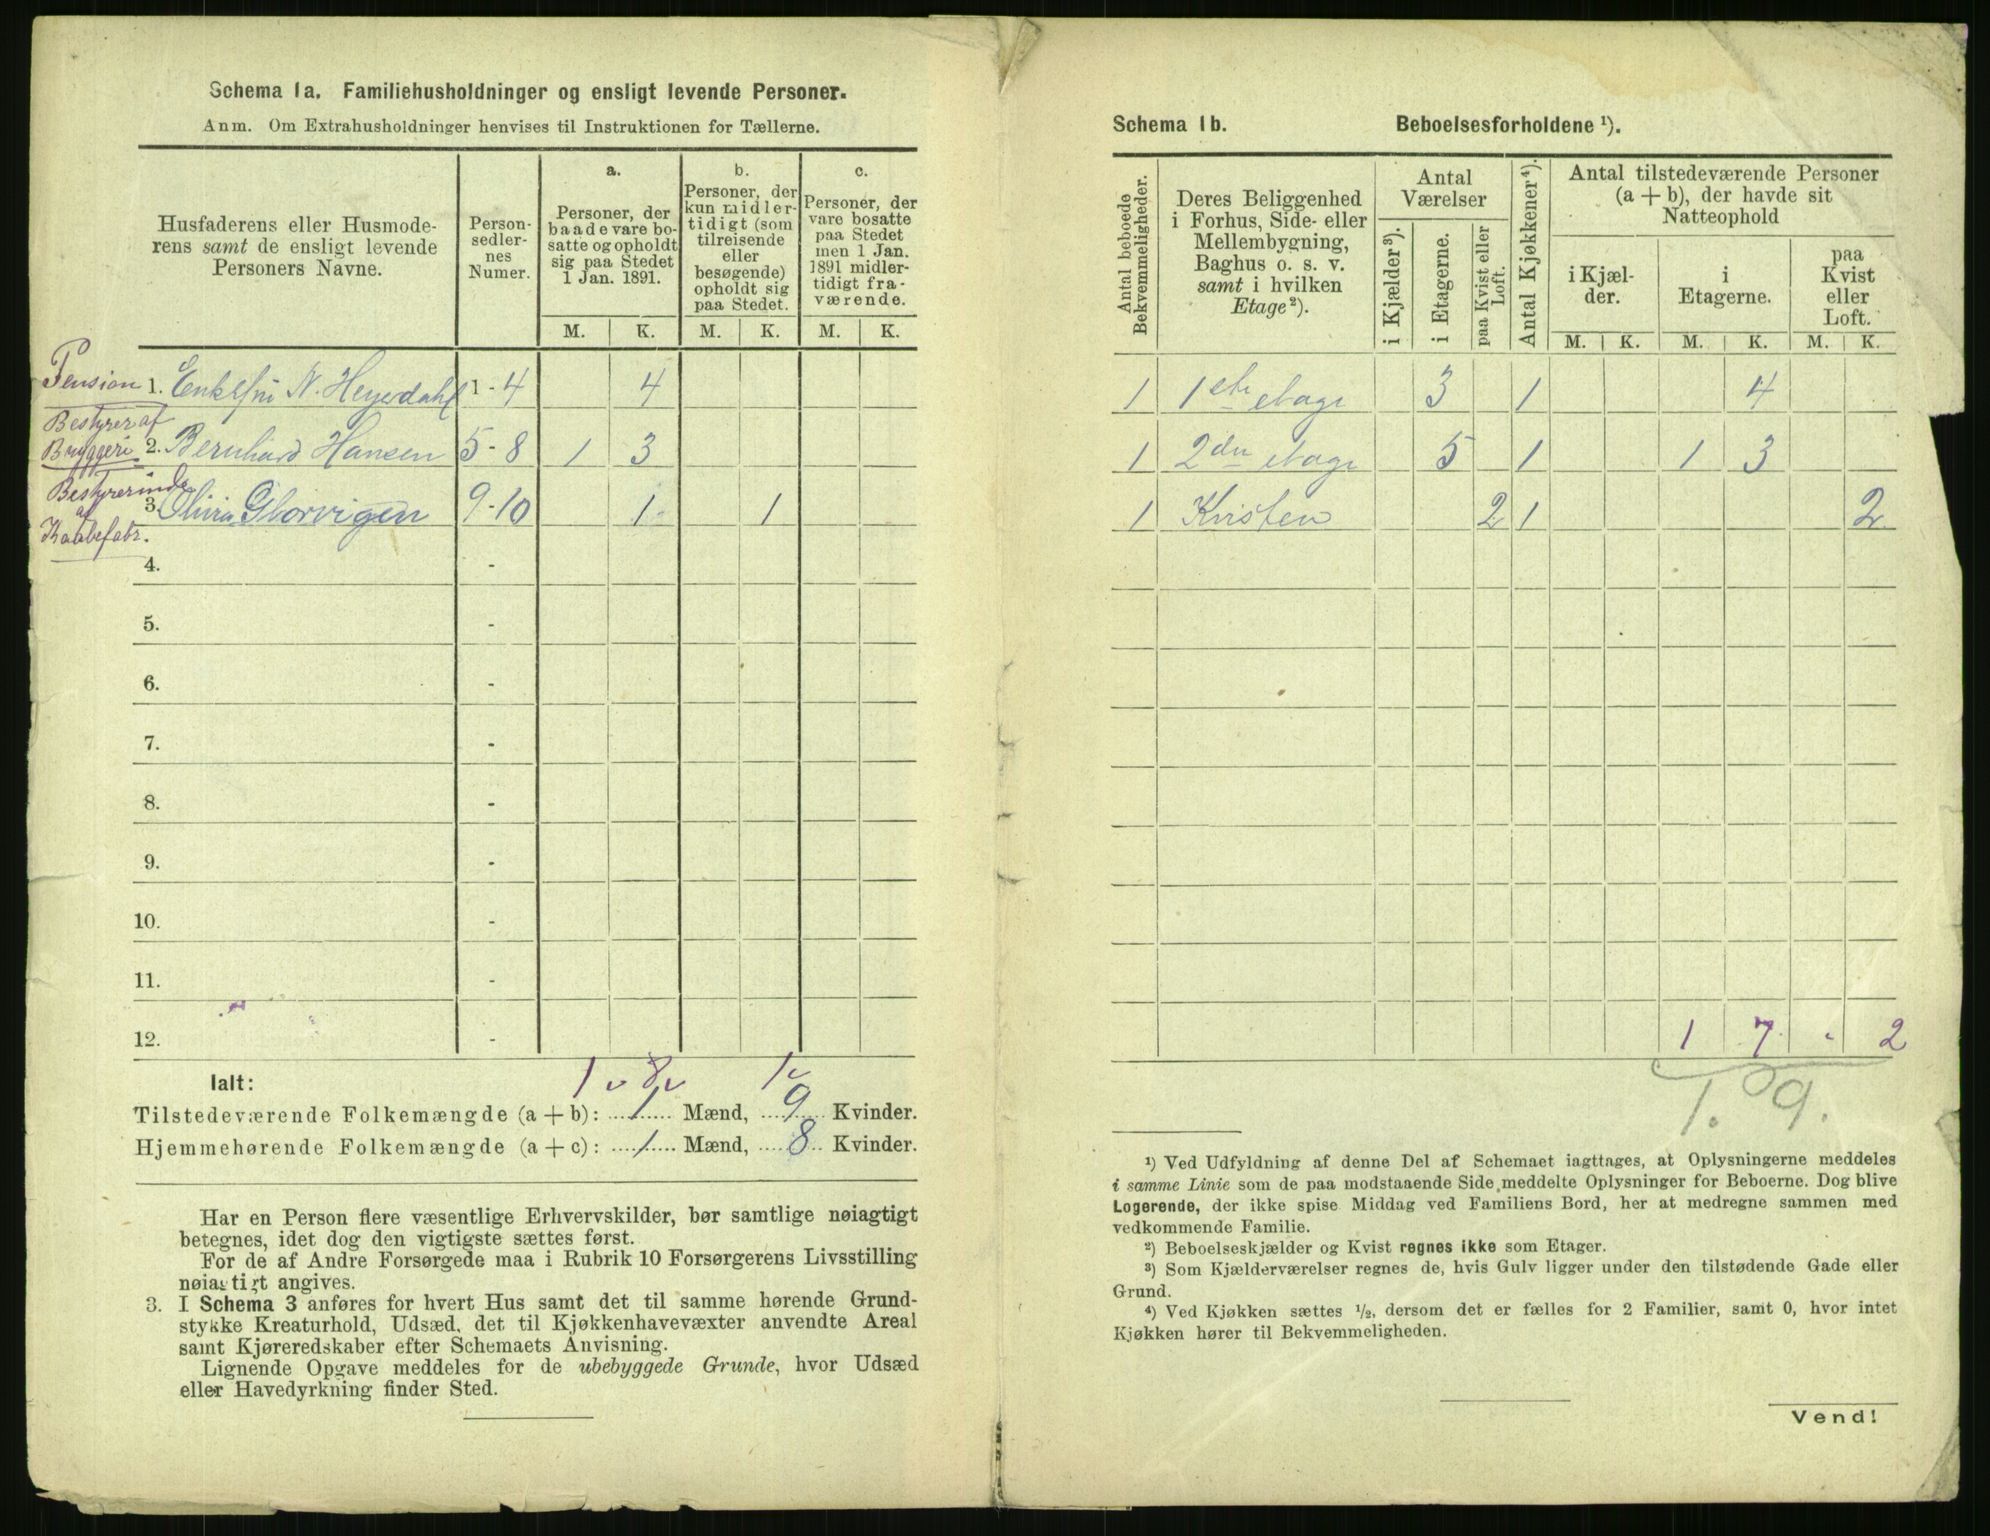 Schema 1a. Familiehusholdninger og ensligt levende Personer.
Anm. Om Extrahusholdninger henvises til Instruktionen for Tællerne.
Husfaderens eller Husmode-
rens samt de ensligt levende
Personers Navne.
Person-
sedler-
nes
Numer.
a.
Personer, der
baade vare bo-
satte og opholdt
sig paa Stedet
1 Jan. 1891.
b.
Personer, der
kun midler-
tidigt (som
tilreisende
eller
besøgende)
opholdt sig
paa Stedet.
c.
Personer, der
vare bosatte
paa Stedet
men 1 Jan.
1891 midler-
tidigt fra-
værende.
M. K. M. K. M. K.
Pension 1. Enkefru N. Heyerdahl 1-4 4
Bestyrer af
Bryggeri 2. Bernhard Hansen 5-8 1 3
Bestyrerinde
af
Kaabefabr. 3. 9-10 1 1
4. -
5. -
6. -
7. -
8. -
9. -
10. -
11. -
12. -
1 8 1
Ialt:
Tilstedeværende Folkemængde (a + b): 1 Mænd, 9 Kvinder.
Hjemmehørende Folkemængde (a + c): 1 Mænd, 8 Kvinder.
Har en Person flere væsentlige Erhvervskilder, bør samtlige nøiagtigt
betegnes, idet dog den vigtigste sættes først.
For de af Andre Forsørgede maa i Rubrik 10 Forsørgerens Livsstilling
nøiagtigt angives.
3. I Schema 3 anføres for hvert Hus samt det til samme hørende Grund-
stykke Kreaturhold, Udsæd, det til Kjøkkenhavevæxter anvendte Areal
samt Kjøreredskaber efter Schemaets Anvisning.
Lignende Opgave meddeles for de ubebyggede Grunde, hvor Udsæd
eller Havedyrkning finder Sted.
Schema 1b. Beboelsesforholdene ¹).
Antal beboede
Bekvemmeligheder.
Deres Beliggenhed
i Forhus, Side- eller
Mellembygning,
Baghus o. s. v.
samt i hvilken
Etage²).
Antal
Værelser
i Kjælder³).
i Etagerne.
paa Kvist eller
Loft.
Antal Kjøkkener⁴).
Antal tilstedeværende Personer
(a + b), der havde sit
Natteophold
i Kjæl-
der.
i
Etagerne.
paa
Kvist
eller
Loft.
M. K. M. K. M. K.
1 1ste etage 3 1 4
1 2den etage 5 1 1 3
1 Kvisten 2 1 2
1 7 - 2
1. 9.
¹) Ved Udfyldning af denne Del af Schemaet iagttages, at Oplysningerne meddeles
i samme Linie som de paa modstaaende Side meddelte Oplysninger for Beboerne. Dog blive
Logerende, der ikke spise Middag ved Familiens Bord, her at medregne sammen med
vedkommende Familie.
²) Beboelseskjælder og Kvist regnes ikke som Etager.
³) Som Kjælderværelser regnes de, hvis Gulv ligger under den tilstødende Gade eller
Grund.
⁴) Ved Kjøkken sættes ½, dersom det er fælles for 2 Familier, samt 0, hvor intet
Kjøkken hører til Bekvemmeligheden.
Vend!